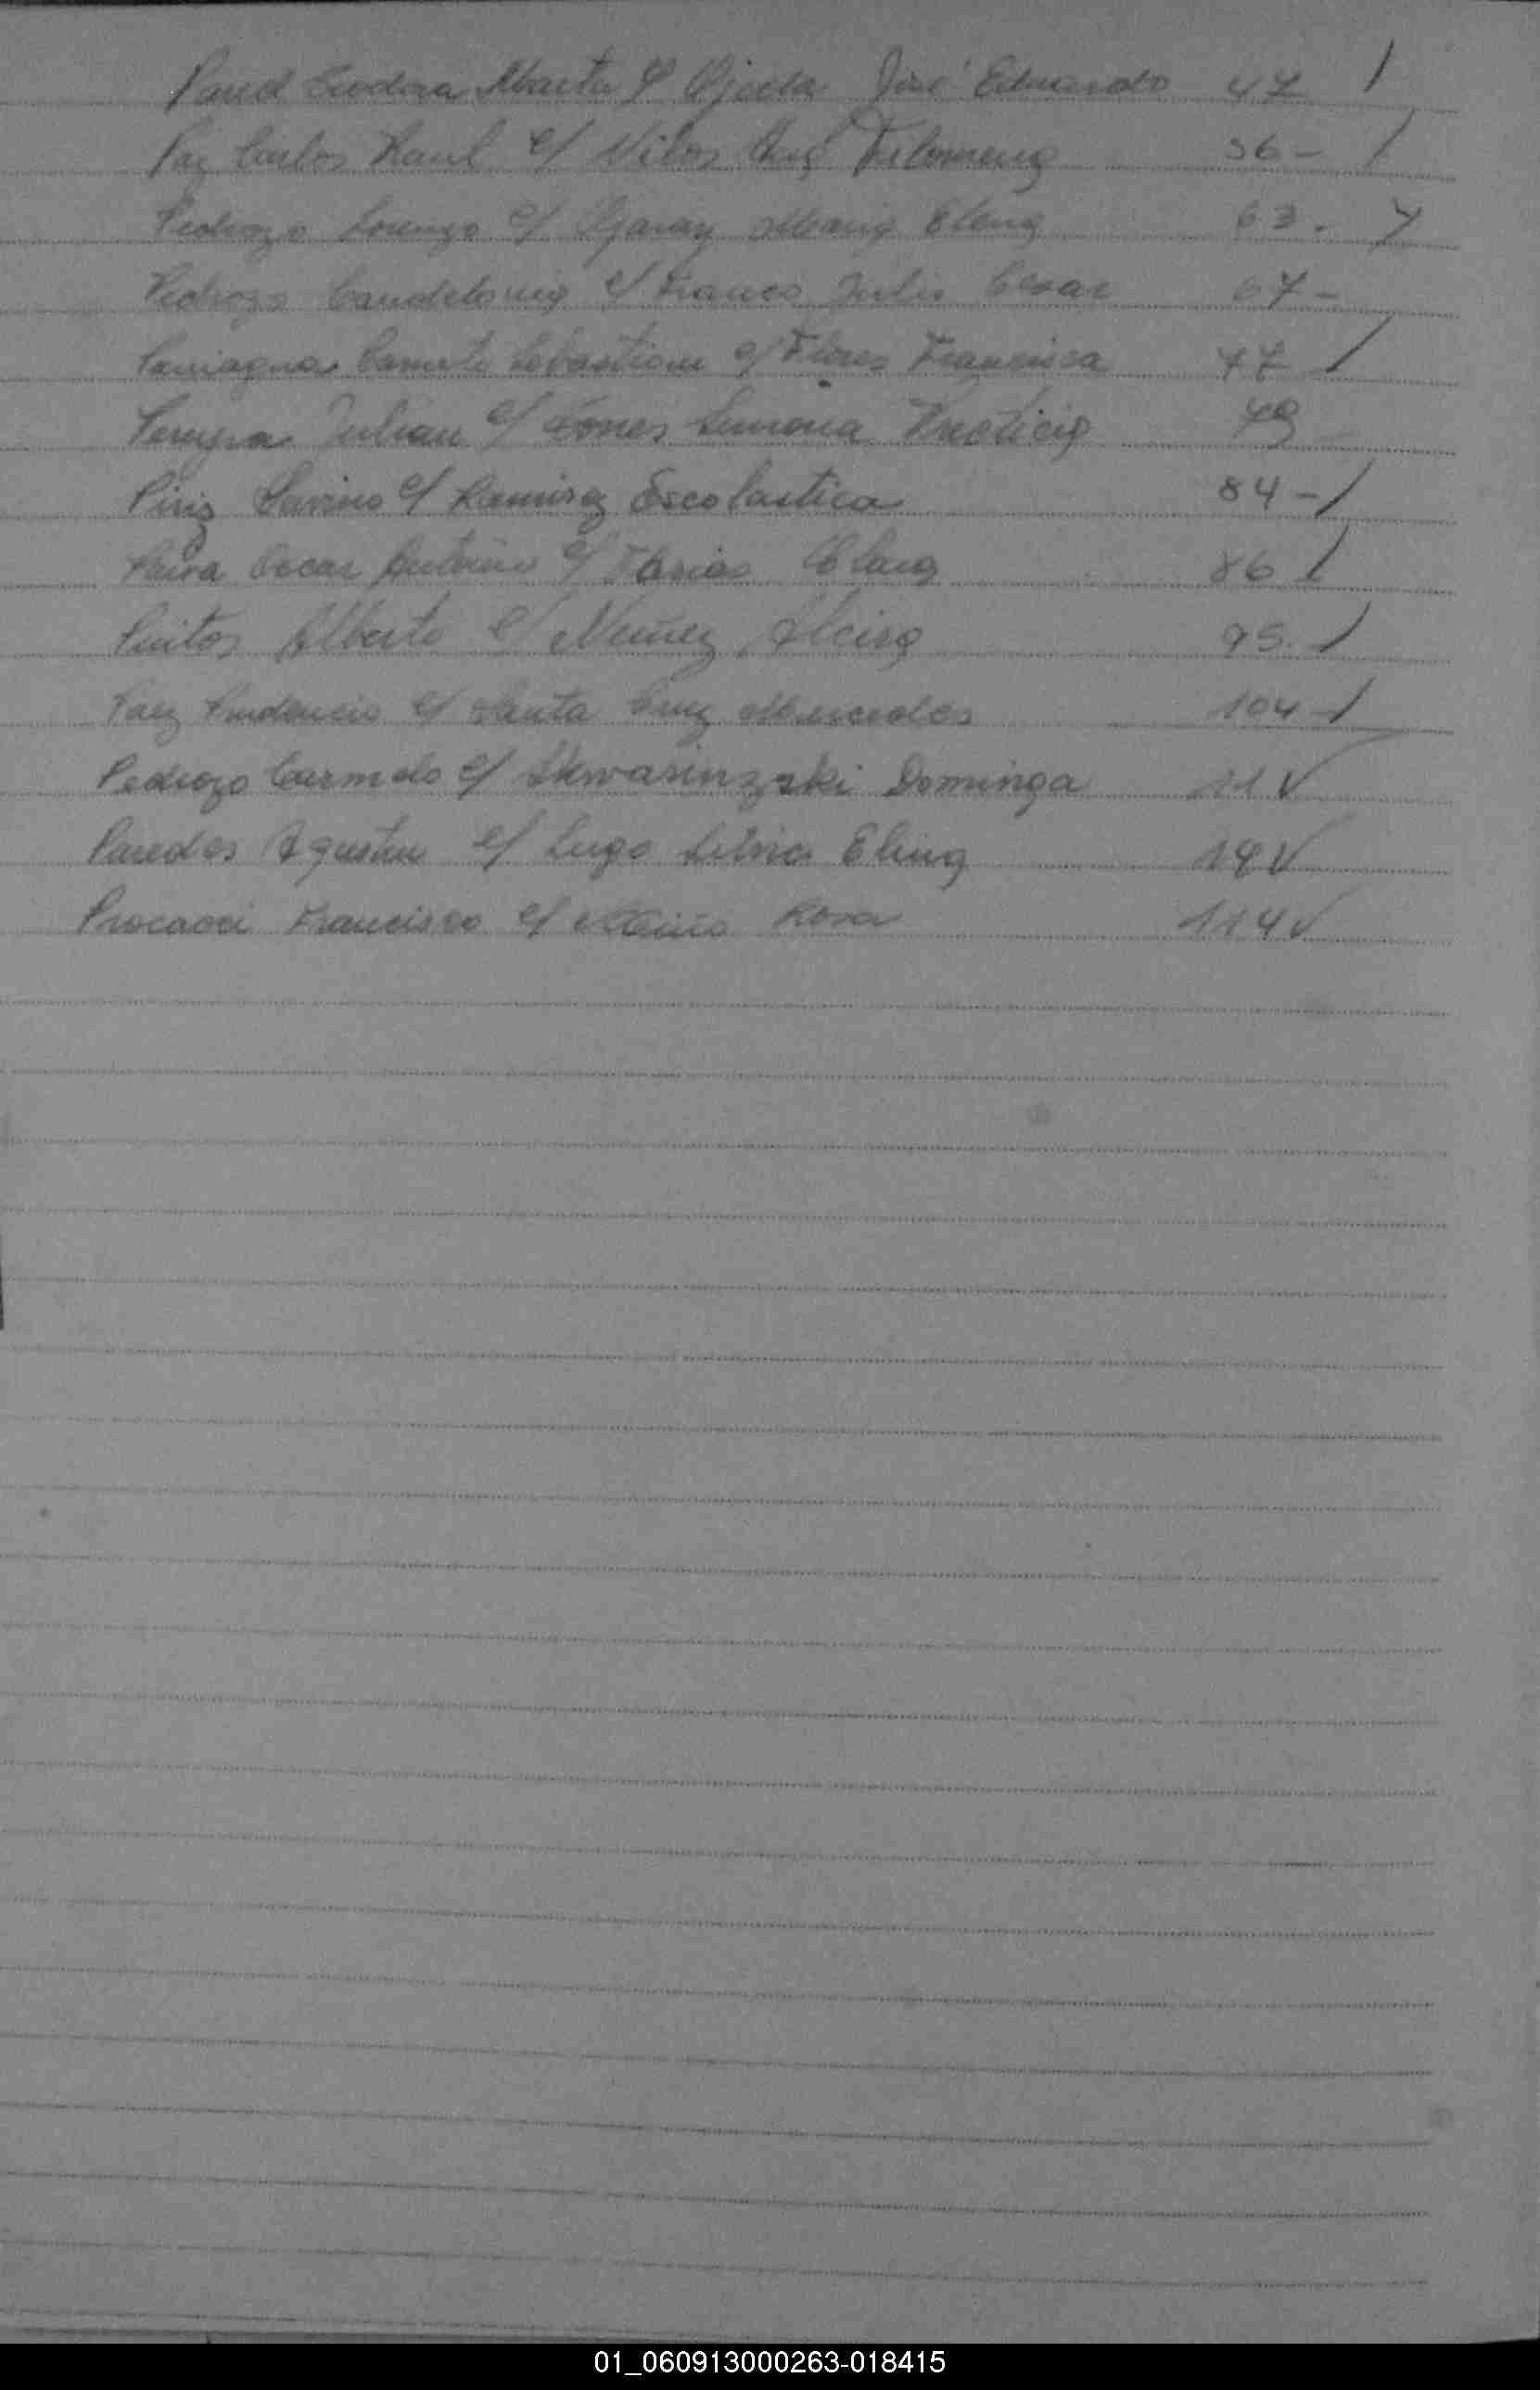 Teodora Marta c/ Ojeda José Eduardo 47 /
Paz Carlos Raul c/ Filomena 56 - /
Pedrozo Lorenzo c/ Garay Maria Elena 63 -
Pedrozo c/ Franco Julio Cesar 67 -
Paniagua Sebastian c/ Flores Francisca 77 /
Pereyra Julian c/ Simona 79
Piriz Savino c/ Ramirez Escolastica 84 - /
Paiva Oscar Antonio c/ Farias Clara 86 /
Pintos Alberto c/ Nuñez Alcira 95 - /
Paez Prudencio c/ Santa Cruz Mercedes 104 - /
Pedrozo Carmelo c/ Skwarinzski Dominga 11 ✓
Paredes Agustin c/ Lugo Silvia Elina 14 ✓
Procacci Francisco c/ Rosa 114 ✓
01_060913000263-018415